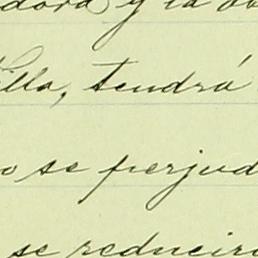 dora y la ob
illa, tendrá
o se perjud
se reducira